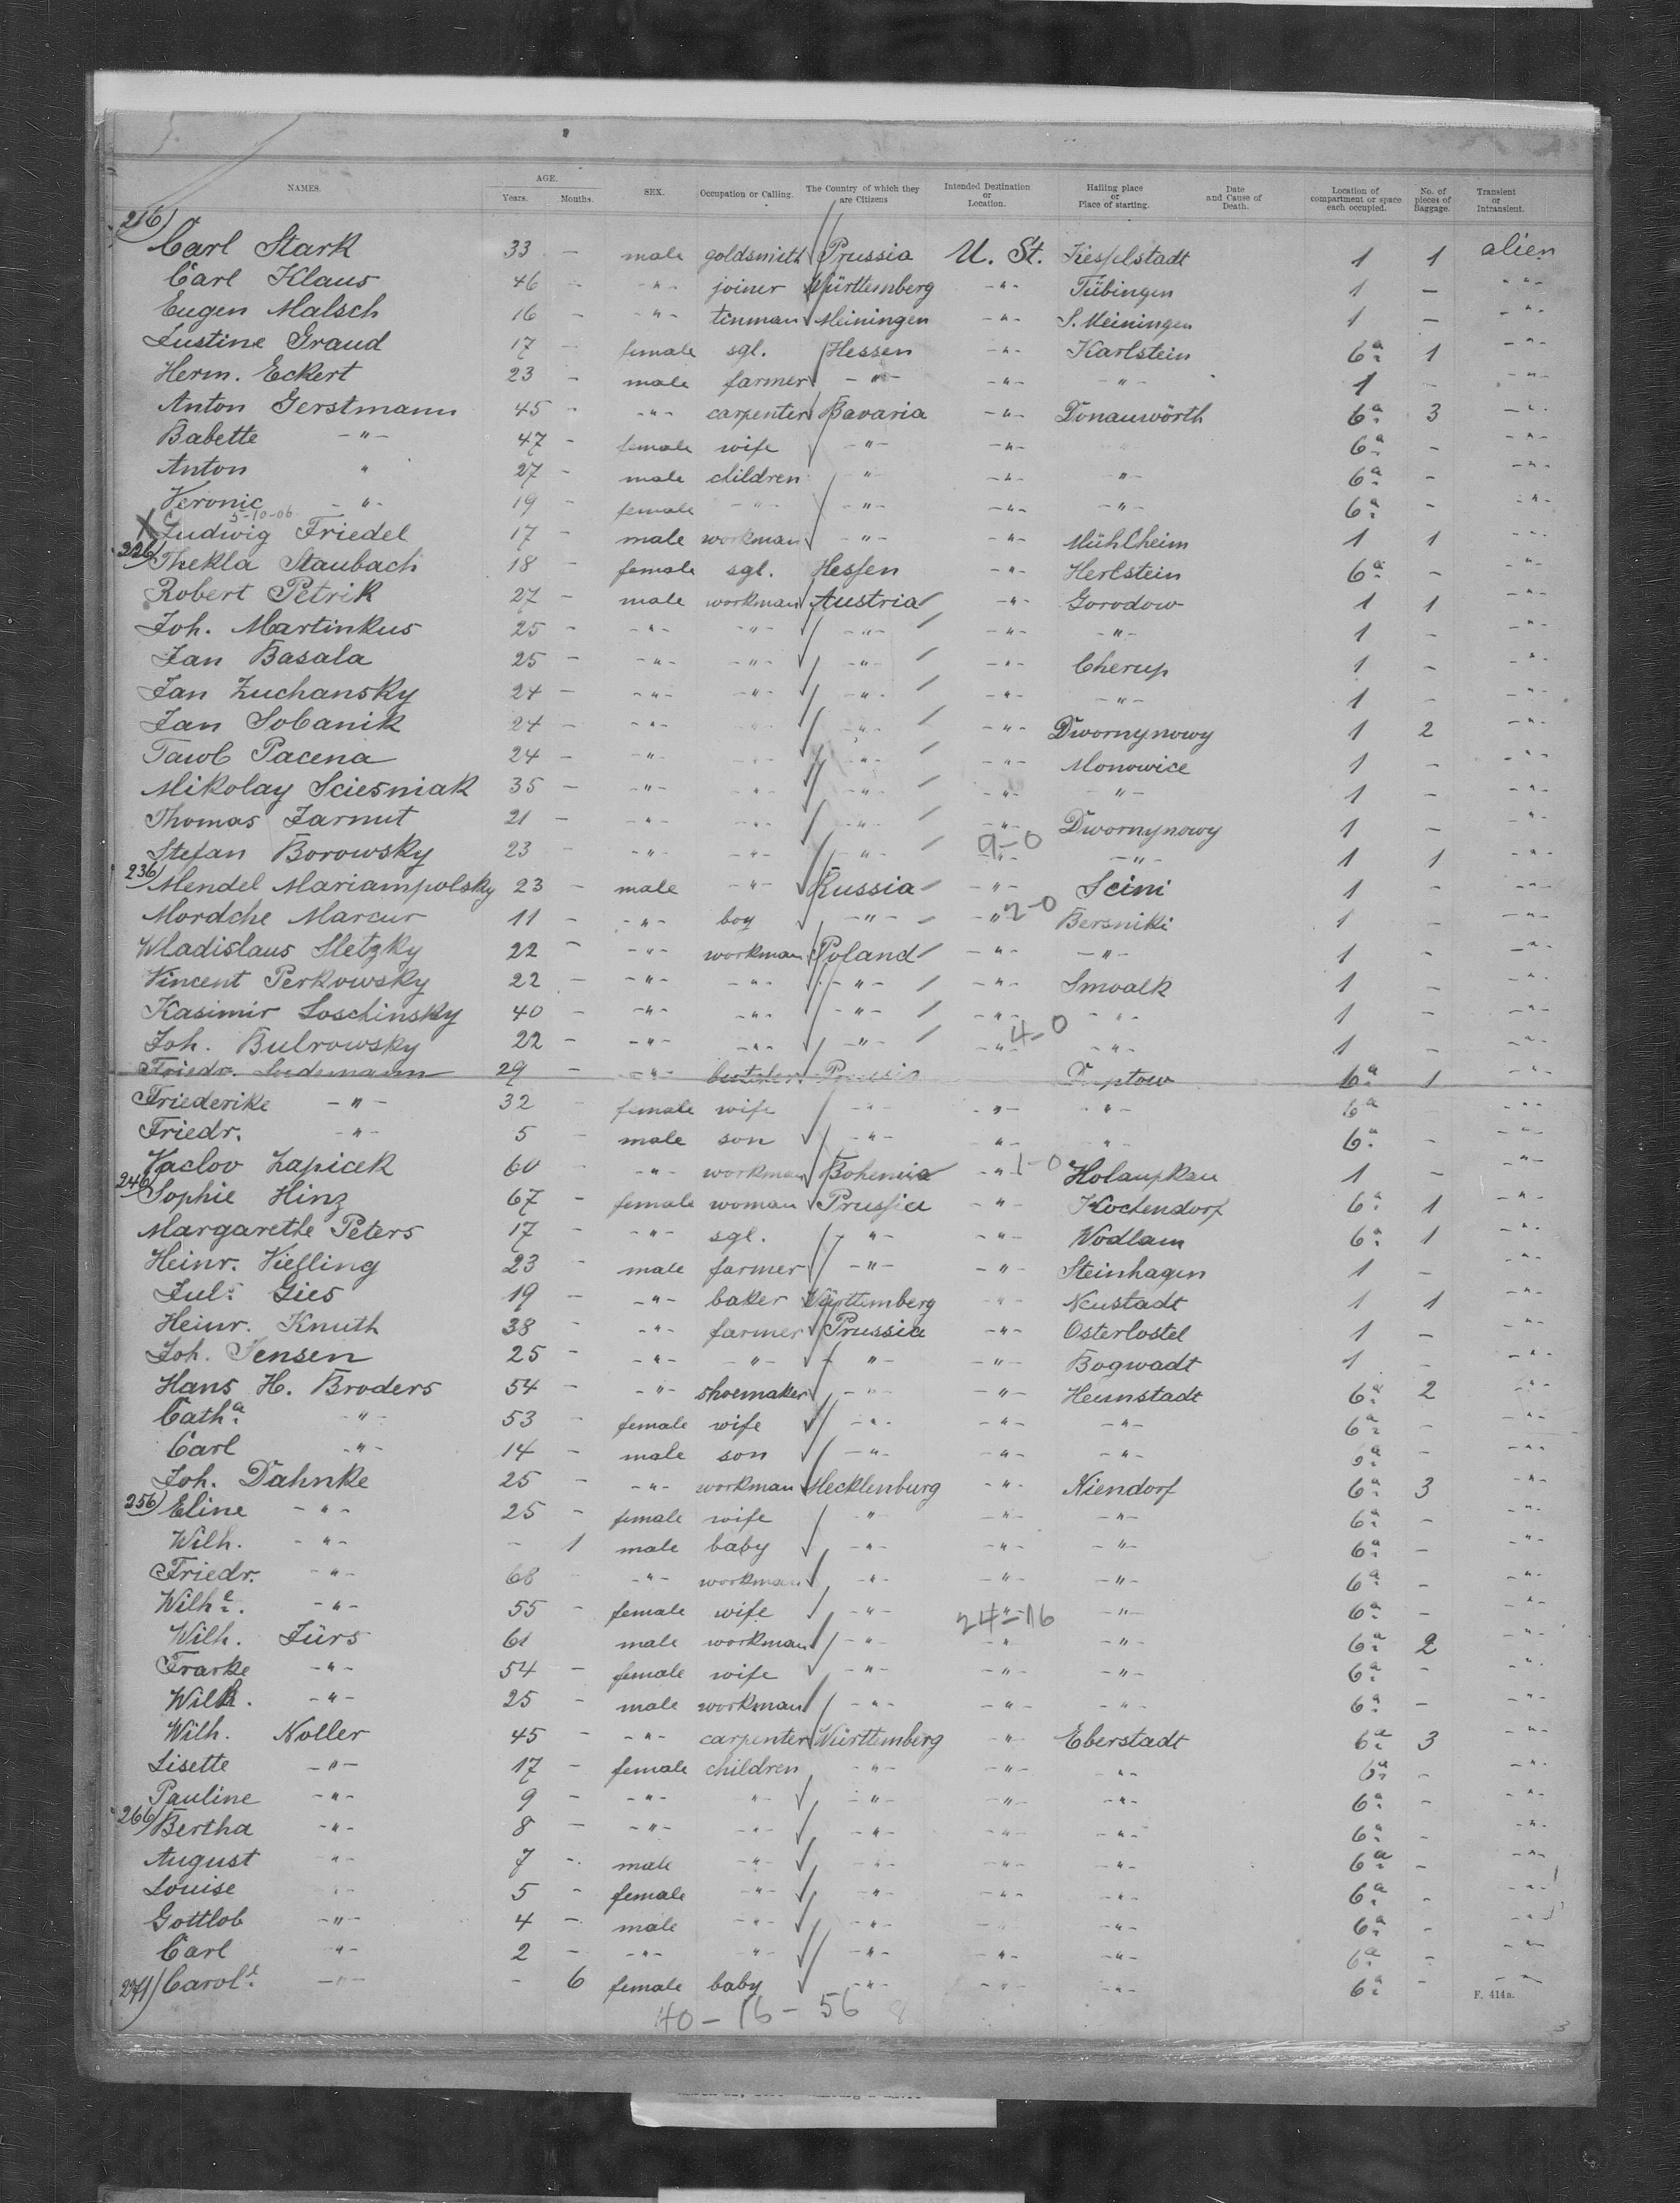 NAMES. AGE. Years. Months. SEX. Occupation or Calling. The Country of which they are Citizens Intended Destination or Location. Hailing place or Place of starting. Date and Cause of Death. Location of compartment or space each occupied. No. of pieces of Baggage. Transient or Intransient.
216) Carl Stark 33 - male goldsmith Prussia U. St. Kesselstadt 1 1 alien
Carl Klaus 46 - -"- joiner Württemberg -"- Tübingen 1 - -"-
Eugen Malsch 16 - -"- tinman Meiningen -"- S. Meiningen 1 - -"-
Justine Graud 17 - female sgl. Hessen -"- Karlstein 6a 1 -"-
Herm. Eckert 23 - male farmer -"- -"- -"- 1 - -"-
Anton Gerstmann 45 - -"- carpenter Bavaria -"- Donauwörth 6a 3 -"-
Babette -"- 47 - female wife -"- -"- 6a - -"-
Anton " 27 - male children -"- -"- -"- 6a - -"-
Veronic -"- 19 - female -"- -"- -"- -"- 6a - -"-
5-10-06
X Ludwig Friedel 17 - male workman -"- -"- Mühlheim 1 1 -"-
226) Thekla Staubach 18 - female sgl. Hessen -"- Herlstein 6a - -"-
Robert Petrik 27 - male workman Austria -"- Gorodow 1 1 -"-
Joh. Martinkus 25 - -"- -"- -"- -"- -"- 1 - -"-
Jan Basala 25 - -"- -"- -"- -"- Cherup 1 - -"-
Jan Zuchansky 24 - -"- -"- -"- -"- -"- 1 - -"-
Jan Sobanik 24 - -"- -"- -"- -"- Dwornynowy 1 2 -"-
Pacena 24 - -"- -"- -"- -"- Monowice 1 - -"-
Mikolay Sciesniak 35 - -"- -"- -"- -"- -"- 1 - -"-
Thomas Jarnut 21 - -"- -"- -"- -"- Dwornynowy 1 - -"-
Stefan Borowsky 23 - -"- -"- -"- 9-0 -"- -"- 1 1 -"-
236) Mendel Mariampolsky 23 - male -"- Russia -"- Scini 1 - -"-
Mordche Marcur 11 - -"- boy -"- -"- 2-0 Bersniki 1 - -"-
Wladislaus Sletzky 22 - -"- workman Poland -"- -"- 1 - -"-
Vincent Perkowsky 22 - -"- -"- -"- -"- Smoalk 1 - -"-
Kasimir Loschinsky 40 - -"- -"- -"- -"- -"- 1 - -"-
Joh. Bulrowsky 22 - -"- -"- -"- -"- 4-0 -"- 1 - -"-
Friedr. 29 - -"- butcher Prussia 6a 1 -"-
Friederike -"- 32 - female wife -"- -"- -"- 6a -"-
Friedr. -"- 5 - male son -"- -"- -"- 6a - -"-
Vaclov Zapicek 60 - -"- workman Bohemia -"- 1-0 Holaupkau 1 - -"-
246) Sophie Hinz 67 - female woman Prussia -"- Kochendorf 6a 1 -"-
Margarethe Peters 17 - -"- sgl. -"- -"- Wodlam 6a 1 -"-
Heinr. Viefling 23 - male farmer -"- -"- Steinhagen 1 - -"-
Juls Gies 19 - -"- baker Württemberg -"- Neustadt 1 1 -"-
Heinr. Knuth 38 - -"- farmer Prussia -"- Osterlostel 1 - -"-
Joh. Jensen 25 - -"- -"- -"- -"- Bogwadt 1 - -"-
Hans H. Broders 54 - -"- shoemaker -"- -"- Heunstadt 6a 2 -"-
Catha -"- 53 - female wife -"- -"- -"- 6a - -"-
Carl -"- 14 - male son -"- -"- -"- 6a - -"-
Joh. Dahnke 25 - -"- workman Mecklenburg -"- Niendorf 6a 3 -"-
256) Eline -"- 25 - female wife -"- -"- -"- 6a - -"-
Wilh. -"- - 1 male baby -"- -"- -"- 6a - -"-
Friedr. -"- 68 - -"- workman -"- -"- -"- 6a - -"-
Wilhe. -"- 55 - female wife -"- 24-16 -"- 6a - -"-
Wilh. Fürs 61 male workman -"- -"- -"- 6a 2 -"-
Frarke -"- 54 - female wife -"- -"- -"- 6a - -"-
Wilh. -"- 25 - male workman -"- -"- -"- 6a - -"-
Wilh. Noller 45 - -"- carpenter Württemberg -"- Eberstadt 6a 3 -"-
Lisette -"- 17 - female children -"- -"- -"- 6a - -"-
Pauline -"- 9 - -"- -"- -"- -"- -"- 6a - -"-
266) Bertha -"- 8 - -"- -"- -"- -"- -"- 6a - -"-
August -"- 7 - male -"- -"- -"- -"- 6a - -"-
Louise -"- 5 - female -"- -"- -"- -"- 6a - -"-
Gottlob -"- 4 - male -"- -"- -"- -"- 6a - -"-
Carl -"- 2 - -"- -"- -"- -"- -"- 6a - -"-
271) Carole -"- - 6 female baby -"- -"- -"- 6a - -"-
F. 414a.
40-16-56 8
3